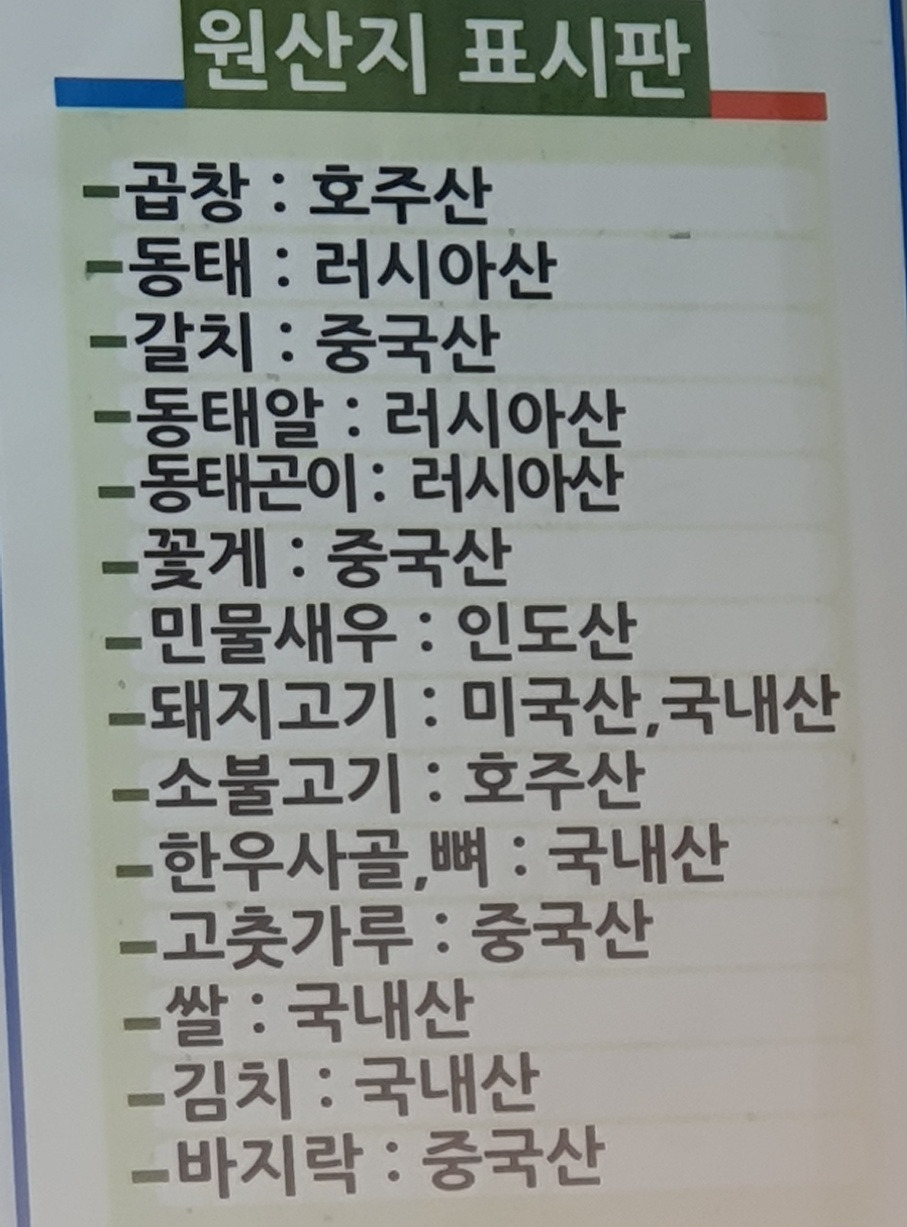 원산지 표시판
-곱창 : 호주산
-동태 : 러시아산
-갈치 : 중국산
-동태알 : 러시아산
-동태곤이 : 러시아산
-꽃게 : 중국산
-민물새우 : 인도산
-돼지고기 : 미국산,국내산
-소불고기 : 호주산
-한우사골,뼈 : 국내산
-고춧가루 : 중국산
-쌀 : 국내산
-김치 : 국내산
-바지락 : 중국산